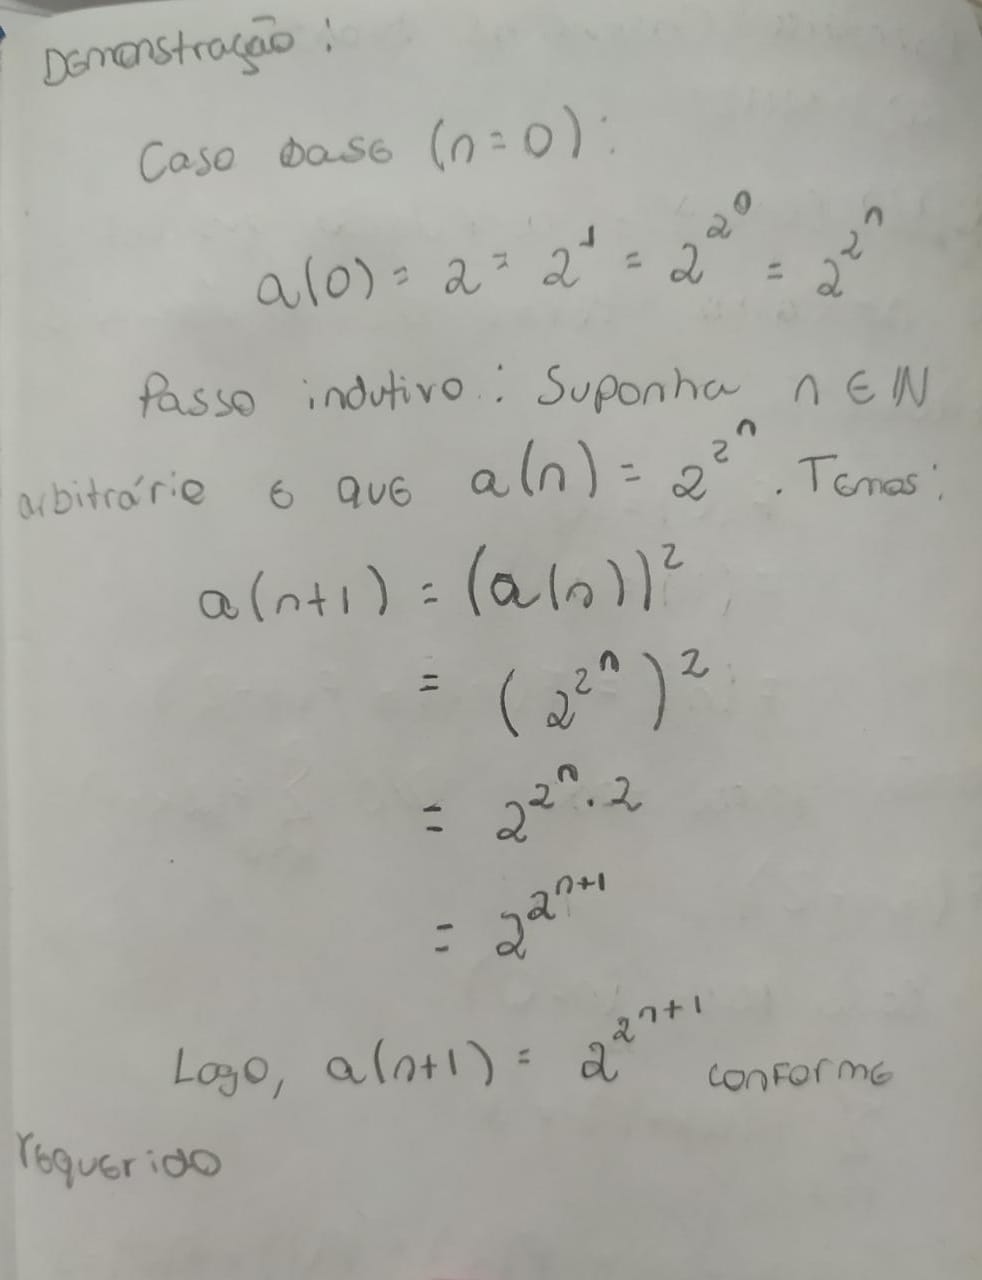 Demonstração:
Caso base (n=0):
a(0) = 2 = 2^1 = 2^{2^0} = 2^{2^n}
Passo indutivo: Suponha n ∈ ℕ
arbitrário e que a(n) = 2^{2^n}. Temos:
a(n+1) = (a(n))^2
= (2^{2^n})^2
= 2^{2^n · 2}
= 2^{2^{n+1}}
Logo, a(n+1) = 2^{2^{n+1}} conforme
requerido